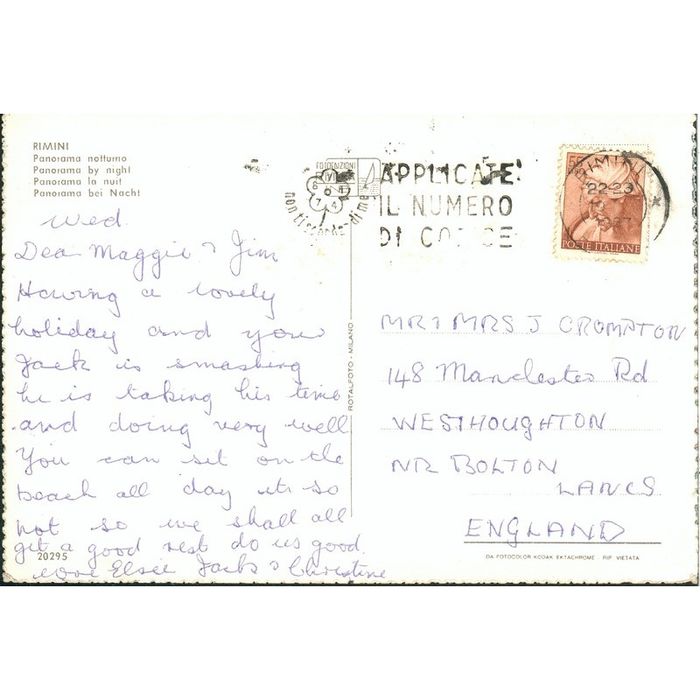 RIMINI
Panorama notturno
Panorama by night
Panorama la nuit
Panorama bei Nacht
Wed.
Dear Maggie & Jim
Having a lovely
holiday and your
Jack is smashing
he is taking his time
and doing very well
You can sit on the
beach all day its so
hot so we shall all
get a good rest do us good
love Elsie Jack & Christine
20295
ROTALFOTO - MILANO
non ti scordar di me
APPLICATE
IL NUMERO
DI CODICE
RIMINI
22-23
POSTE ITALIANE
MR & MRS J CROMPTON
148 Manchester Rd
WESTHOUGHTON
NR BOLTON
LANCS
ENGLAND
DA FOTOCOLOR KODAK EKTACHROME - RIP. VIETATA